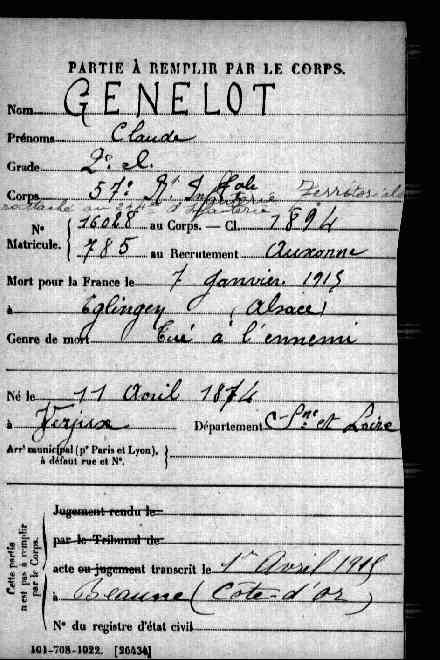 PARTIE À REMPLIR PAR LE CORPS.
Nom GENELOT
Prénoms Claude
Grade 2e cl.
Corps 57e Rt d'Infanterie Territoriale
rattaché au Infanterie
No 16028 au Corps. — Cl. 1894
Matricule. 785 au Recrutement Auxonne
Mort pour la France le 7 Janvier 1915
à Eglingen (Alsace)
Genre de mort Tué à l'ennemi
Né le 11 Avril 1874
à Verjux Département Sne et Loire
Arrt municipal (pr Paris et Lyon),
à défaut rue et No.
Cette partie
n'est pas à remplir
par le Corps.
Jugement rendu le
par le Tribunal de
acte ou jugement transcrit le 1er Avril 1915
à Beaune (Côte-d'or)
No du registre d'état civil
101-708-1922. [26434]